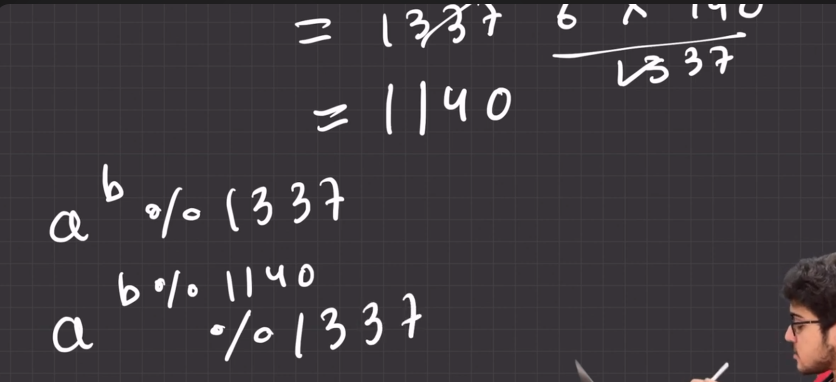 = 1337 6 × 190
1337
= 1140
a^b % 1337
a^b % 1140 % 1337